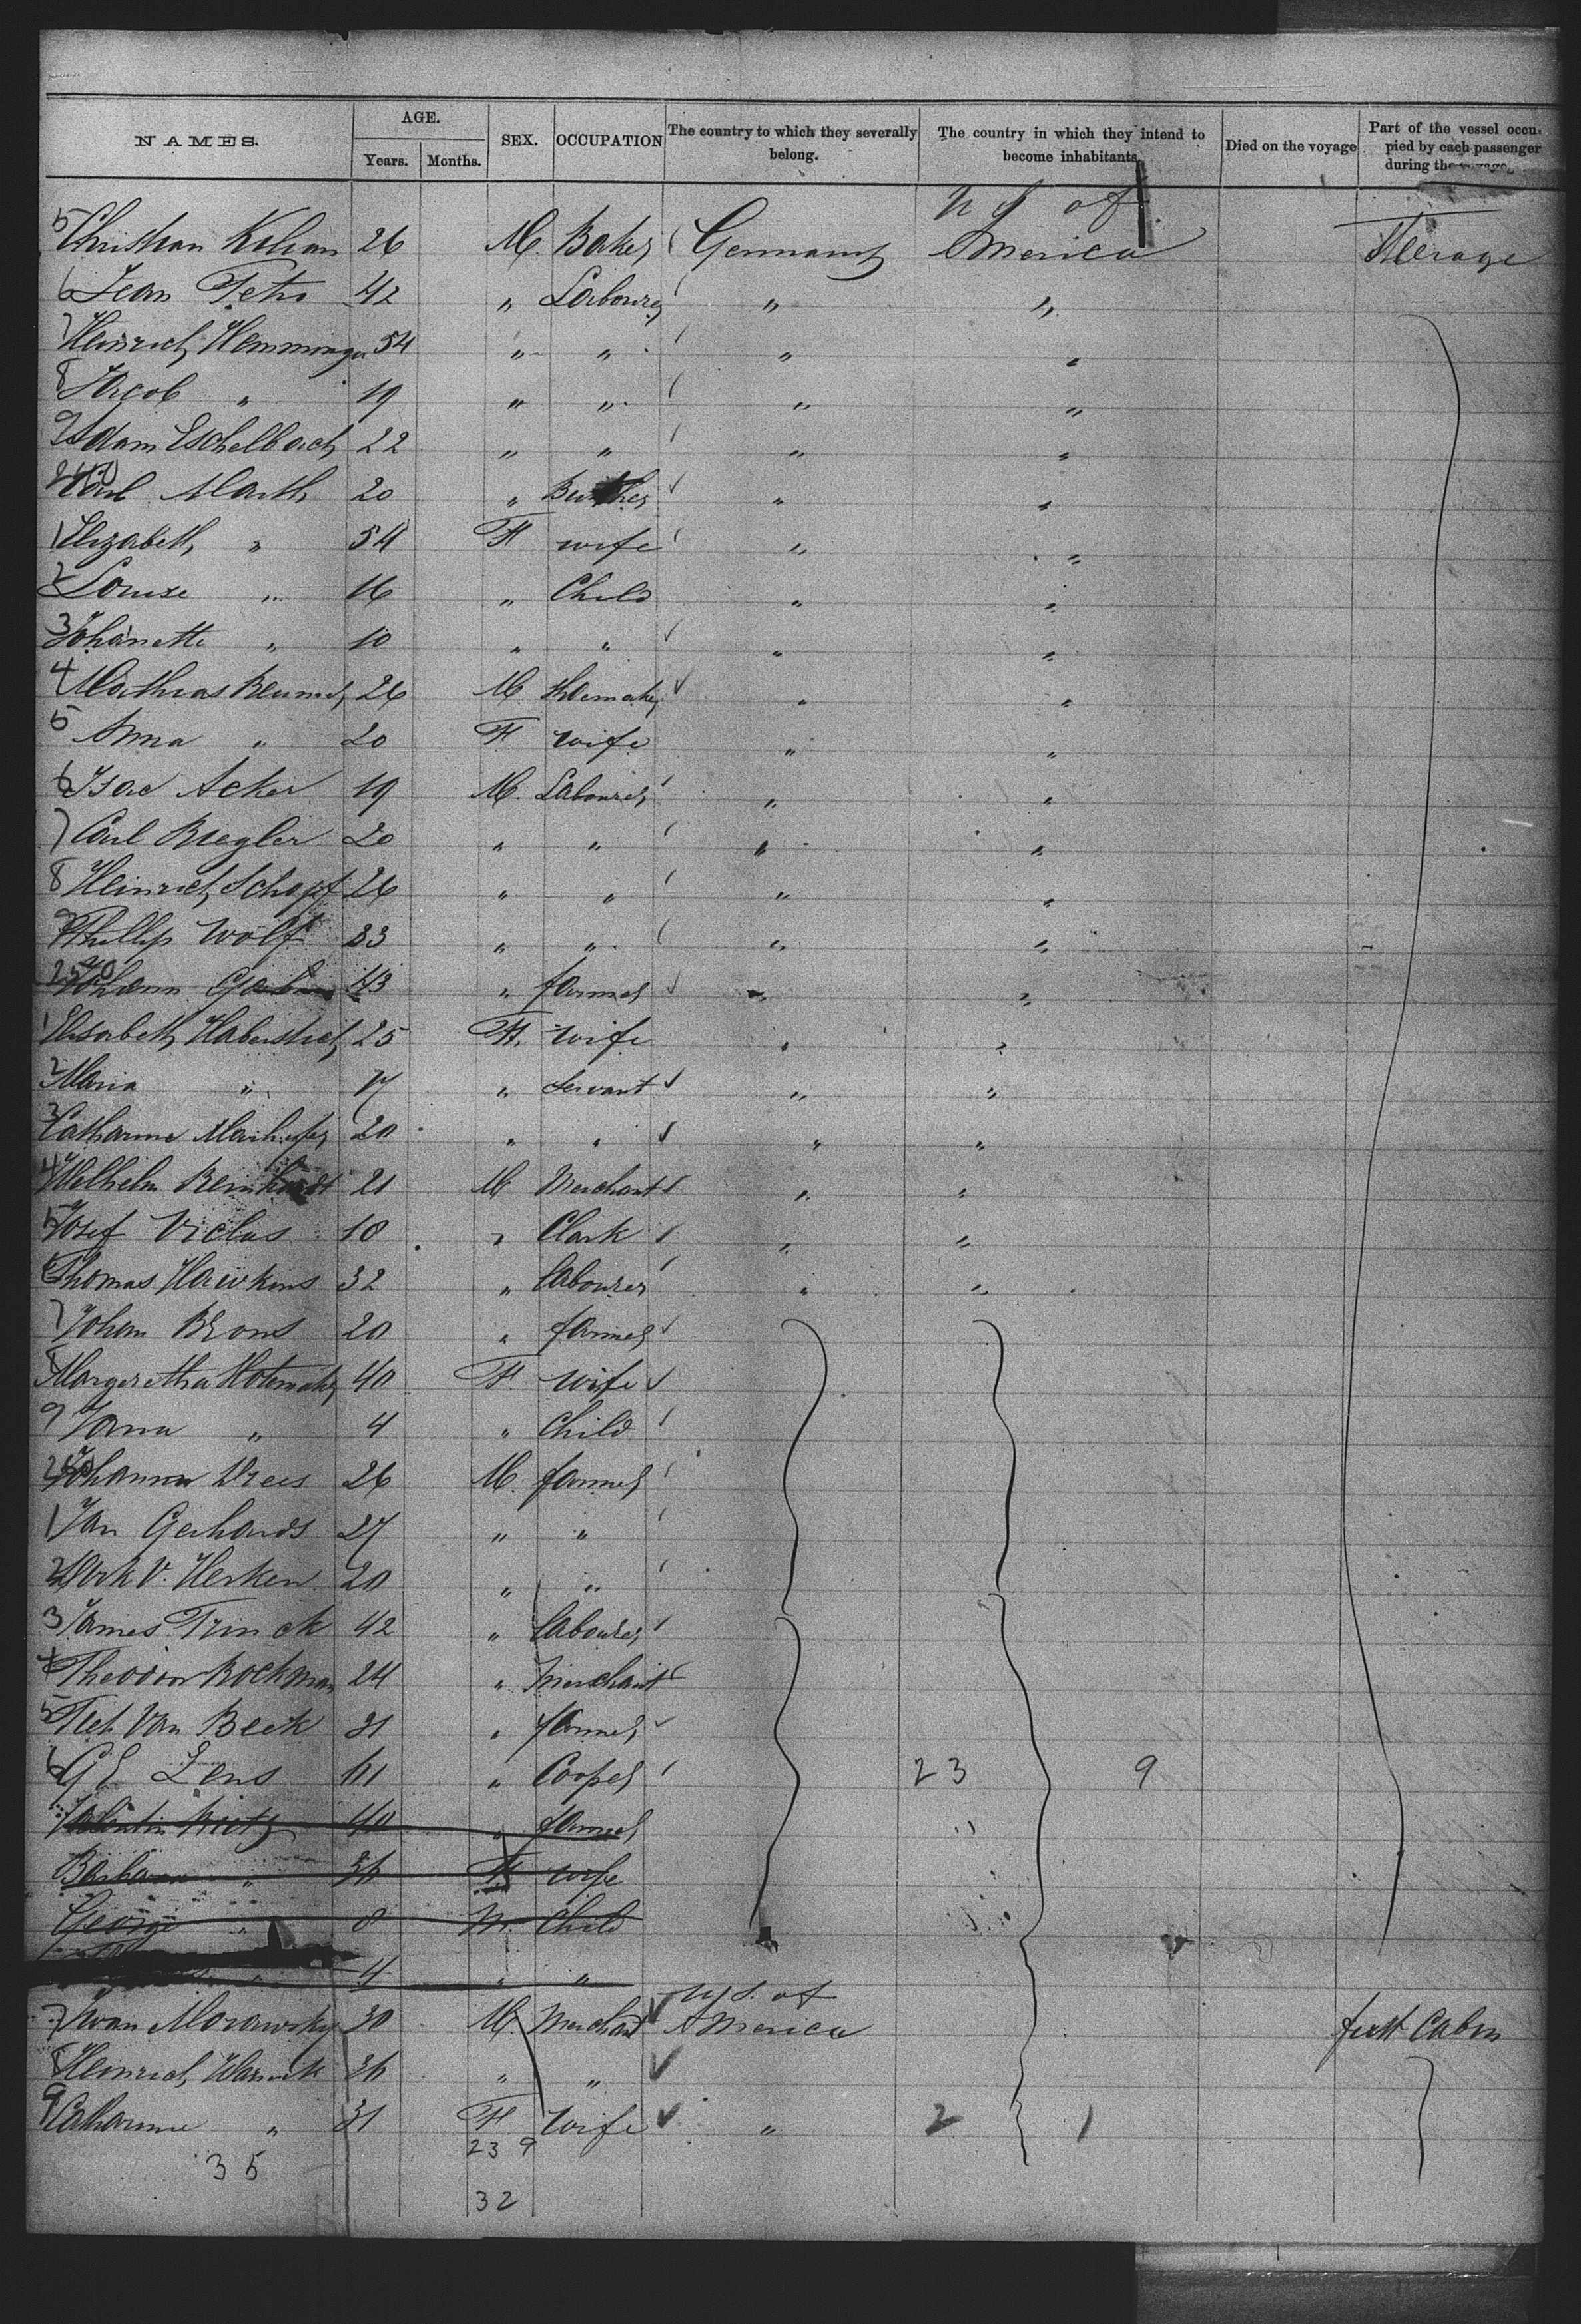 NAMES. AGE. SEX. OCCUPATION The country to which they severally belong. The country in which they intend to become inhabitants. Died on the voyage Part of the vessel occupied by each passenger during the voyage.
Years. Months.
U S of
5 Christian Kilian 26 M. Baker Germany America Steerage
6 Jean Petri 42 " Labourer " "
7 Heinrich Hemminger 54 " " " "
8 Jacob " 19 " " " "
9 Adam Eschelbach 22 " " " "
240 Carl Marth 20 " " "
1 Elizabeth " 54 F wife " "
2 Louise " 16 " Child " "
3 Johanette " 10 " " " "
4 Mathias 26 M. " "
5 Anna " 20 F wife " "
6 Isac Acker 19 M. Labourer " "
7 Carl Biegler 20 " " " "
8 Heinrich Schopf 26 " " " "
9 Phillip Wolf 33 " " " "
250 Johann 43 " farmer " "
1 Elisabeth Haberstich 25 F. wife " "
2 Maria " 17 " Servant " "
3 Catharine 20 " " " "
4 Wilhelm Reinhardt 21 M Merchant " "
5 Josef 18 " Clark " "
6 Thomas Hawkins 32 " labourer " "
7 Johan Brons 20 " farmer
8 Margaretha 40 F. wife
9 " 4 " Child
260 Johann Drees 26 M. farmer
1 Jan Gerhards 27 " "
2 Dirk V. Herken 20 " "
3 James Trinck 42 " labourer
4 Theodor Bockman 24 " merchant
5 Van Beek 21 " farmer
6 G E Lens " Cooper 23 9
Valentin 40 " farmer
Barbara " 36 F wife
George " 8 M. Child
4 " "
U S. of
7 Iwan Morawsky 30 M. Merchant America first Cabin
8 Heinrich 36 " "
9 Catharine " 31 F wife " 2 1
23 9
35
32